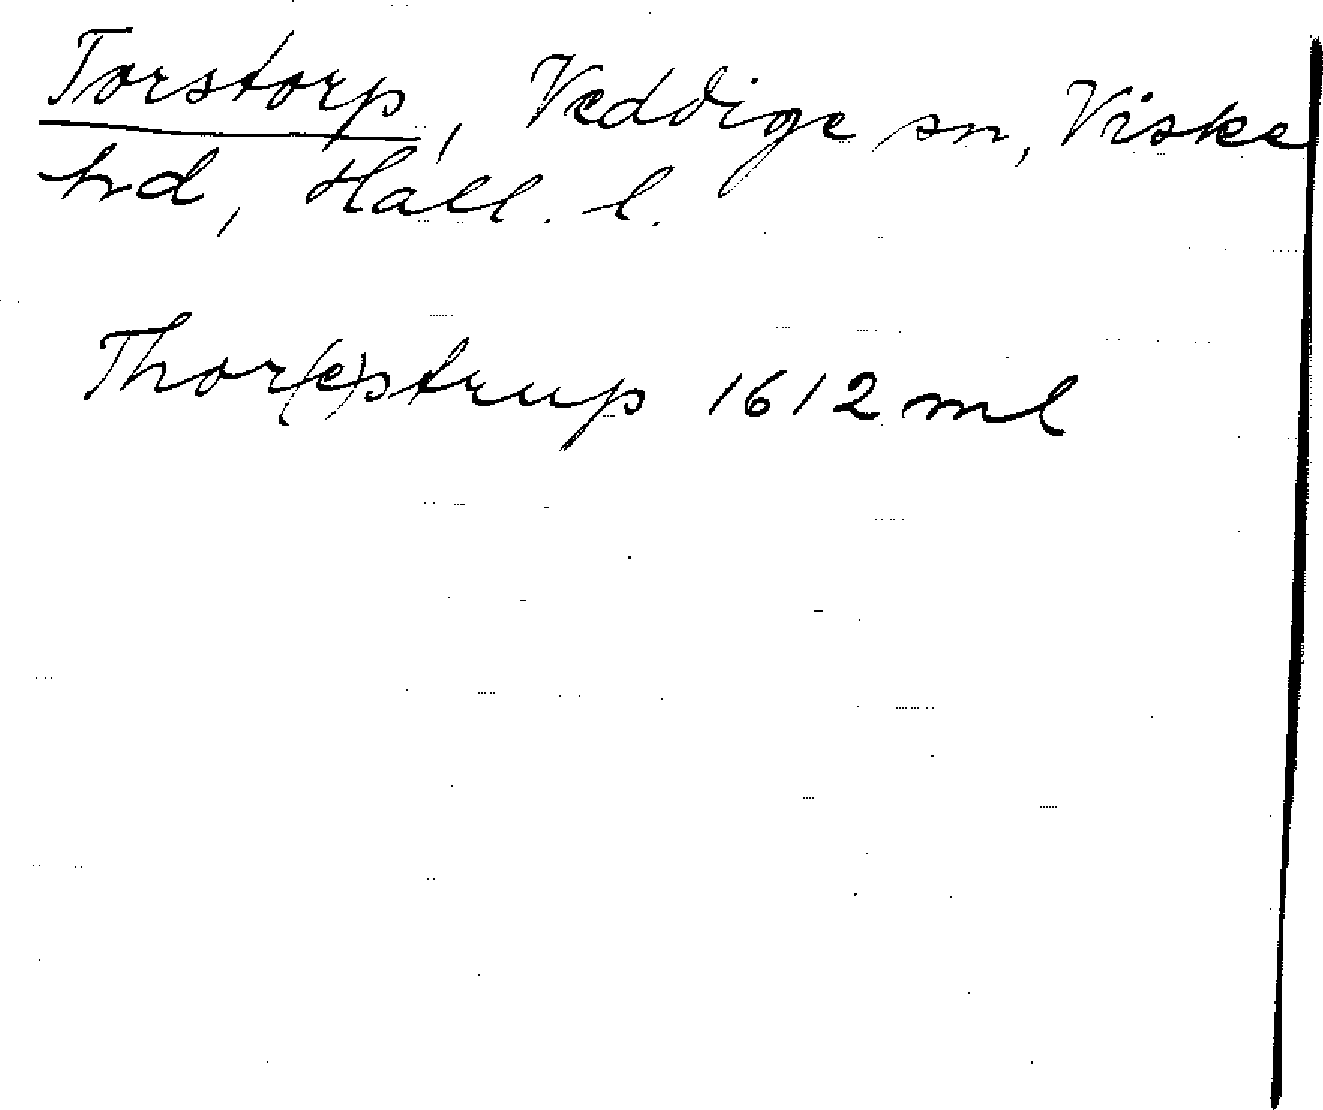 Torstorp, Veddige sn, Viske
hd, Hall. l.
Thor(e)strup 1612 ml